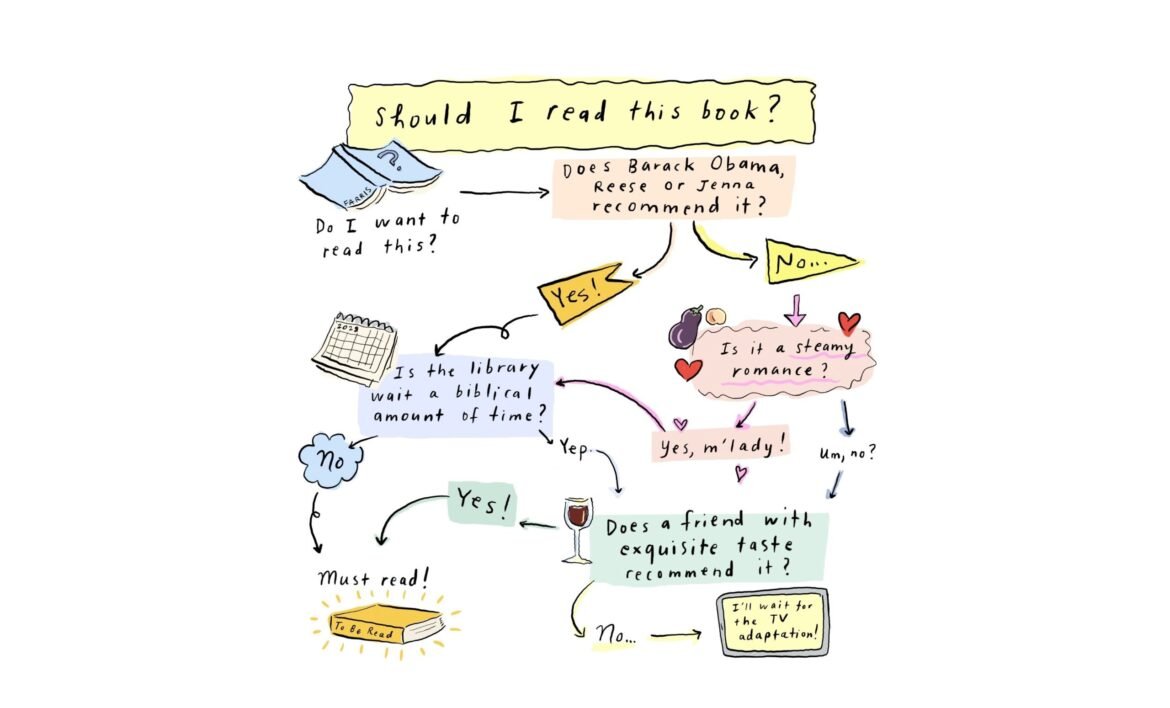 should I read this book?
?
FARRIS
Do I want to
read this?
Does Barack Obama,
Reese or Jenna
recommend it?
Yes!
No...
2028
Is it a steamy
romance?
Is the library
wait a biblical
amount of time?
Yes, m'lady!
Um, no?
No
Yep.
Yes!
Does a friend with
exquisite taste
recommend it?
Must read!
To Be Read
No...
I'll wait for
the TV
adaptation!